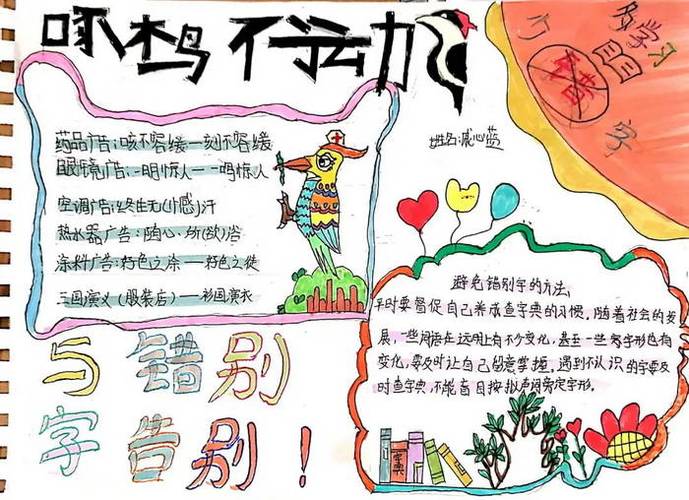 啄木鸟 行动
姓名:戚心蓝
学习
字
药品广告:咳不容缓—刻不容缓
眼镜广告:一明惊人——鸣惊人
空调广告:终生无(憾)汗
热水器广告:随心所(欲)浴
涂料广告:好色之涂—好色之徒
三国演义(服装店)—衫国演衣
避免错别字的方法
平时要督促自己养成查字典的习惯,随着社会的发
展,一些词语在运用上有不少变化,甚至一些字形也有
变化,要及时让自己留意掌握。遇到不认识的字要及
时查字典,不能盲目按拟声词旁定字形。
与错别
字告别!
字典